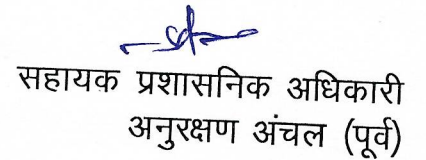 सहायक प्रशासनिक अधिकारी
अनुरक्षण अंचल (पूर्व)